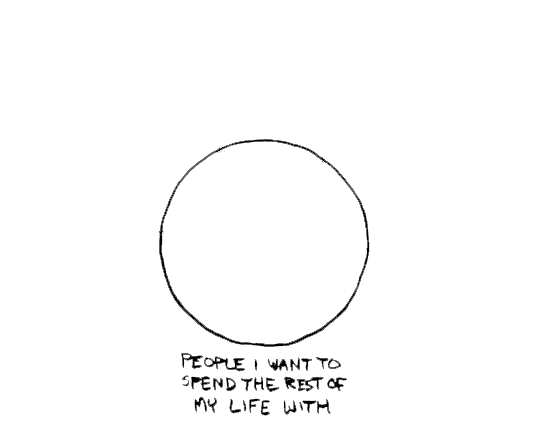 PEOPLE I WANT TO
SPEND THE REST OF
MY LIFE WITH